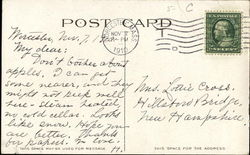 POST CARD
Worcester, Nov. 7, 1910
My dear:
Don't bother about
apples. I can get
some nearer, and they
might not keep well
here - steam heated,
no cold cellar. Looks
like snow. Hope you
are better. Thanks
for papers. In love.
H.
NOV 7
8 - PM
1910
C
Mrs. Lottie Cross.
Hillsboro Bridge,
New Hampshire.
THIS SPACE MAY BE USED FOR MESSAGE
THIS SPACE FOR THE ADDRESS